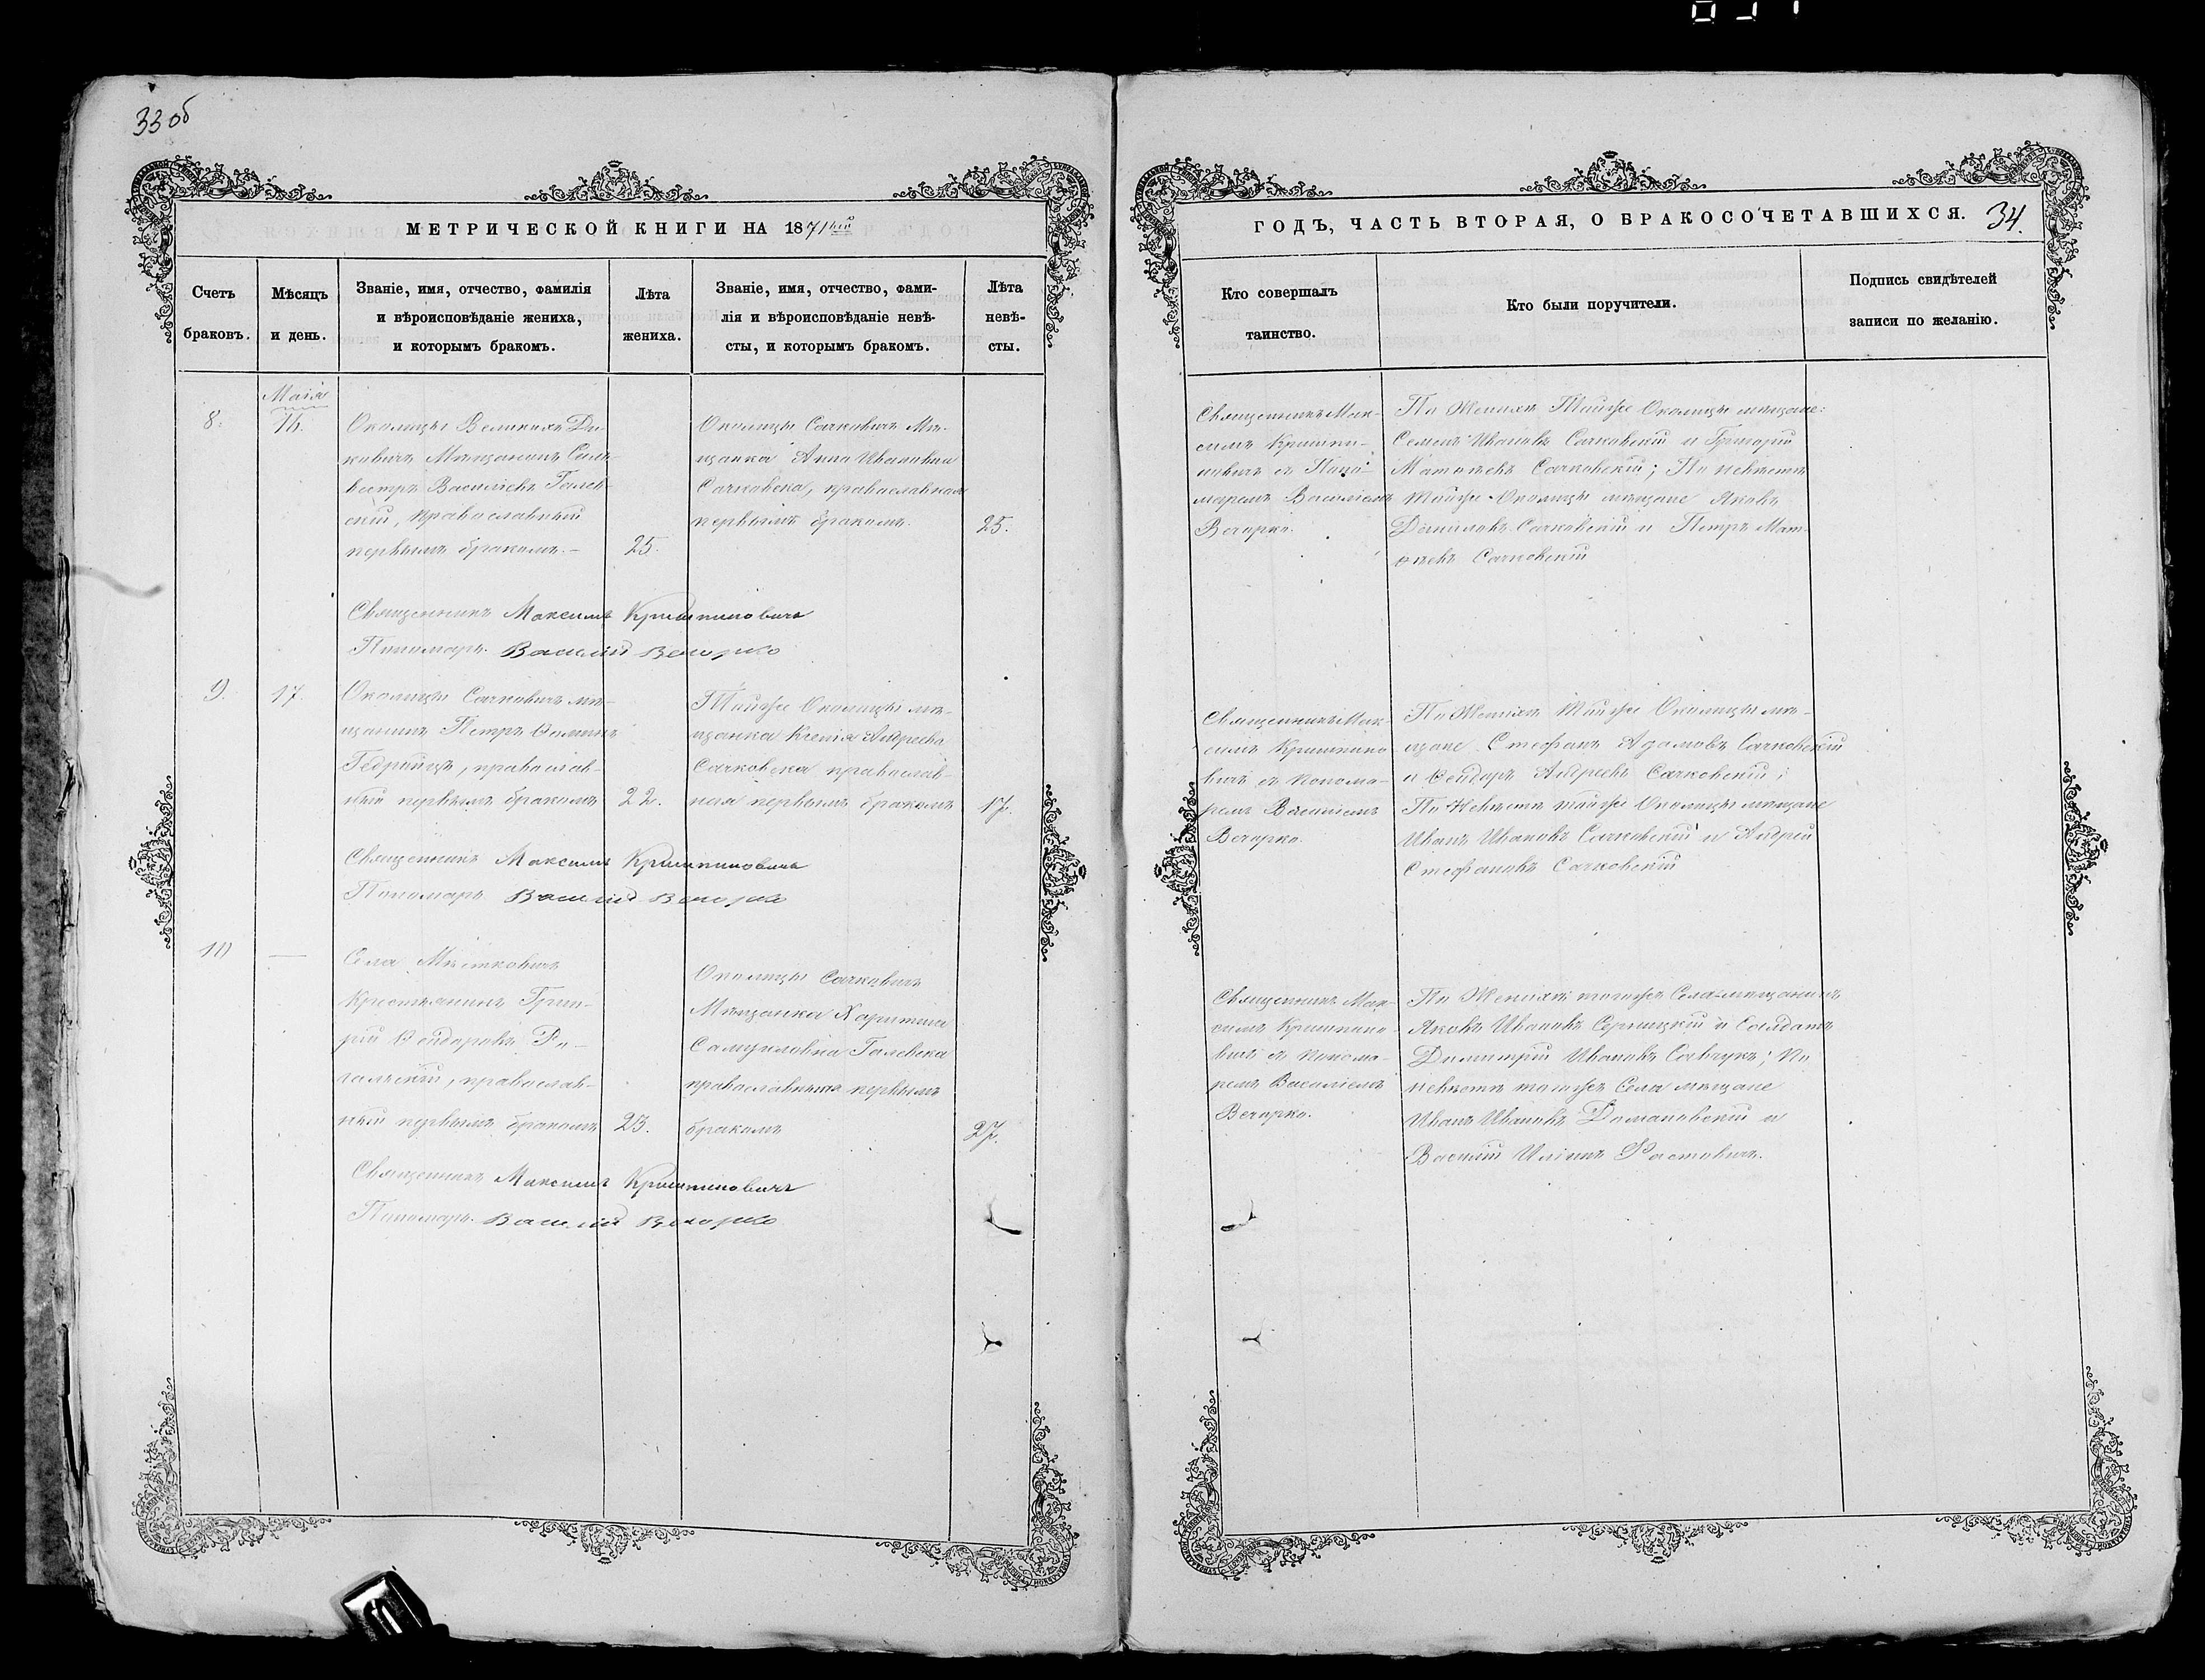 33 об
МЕТРИЧЕСКОЙ КНИГИ НА 1871
Счетъ браковъ.
Мѣсяцъ и день.
Званіе, имя, отчество, фамилія
и вѣроисповѣданіе жениха,
и которымъ бракомъ.
Лѣта жениха.
Званіе, имя, отчество, фами-
лія и вѣроисповѣданіе невѣ-
сты, и которымъ бракомъ.
Лѣта
невѣ-
сты.
Маія
8.
Околицы Великихъ Ди-
ковичъ Мѣщанинъ Силь-
вестръ Васильевъ Галев-
скій, православный
первымъ бракомъ.—
25.
Околицы Сачковичъ Мѣ-
щанка Анна Иванова
Сачковска, православная
первымъ бракомъ.
25.
Священникъ Максимъ
Пономарь Василій Вечорко
9.
17.
Околицы Сачковичъ мѣ-
щанинъ Петръ Ѳоминъ
православ-
ный первымъ бракомъ
22.
Тойже Околицы мѣ-
щанка Ксенія Андреева
Сачковска православ-
ная первымъ бракомъ
17.
Священникъ Максимъ
Пономарь Василій Вечорко
10
—
Села Мѣстковичъ
Крестьянинъ Григо-
рій Ѳеодоровъ Ро-
гальскій, православ-
ный первымъ бракомъ
23.
Околицы Сачковичъ
Мѣщанка Харитина
Самуиловна Галевска
православная первымъ
бракомъ
27.
Священникъ Максимъ
Пономарь Василій Вечорко
ГОДЪ, ЧАСТЬ ВТОРАЯ, О БРАКОСОЧЕТАВШИХСЯ.
34.
Кто совершалъ
таинство.
Кто были поручители.
Подпись свидѣтелей
записи по желанію.
Священникъ Мак-
симъ
съ Поно-
маремъ Василіемъ
Вечорко.
По Женихѣ Тойже Околицы мѣщане:
Семенъ Ивановъ Сачковскій и Григорій
Матѳеевъ Сачковскій; По невѣстѣ
тойже Околицы мѣщане Яковъ
Даниловъ Сачковскій и Петръ Мат-
ѳеевъ Сачковскій
Священникъ Мак-
симъ
съ понома-
ремъ Василіемъ
Вечорко.
По Женихѣ тойже Околицы мѣ-
щане Стефанъ Адамовъ Сачковскій
и Ѳеодоръ Андреевъ Сачковскій;
По Невѣстѣ тойже Околицы мѣщане
Иванъ Ивановъ Сачковскій и Андрей
Стефановъ Сачковскій
Священникъ Мак-
симъ
съ понома-
ремъ Василіемъ
Вечорко.
По Женихѣ тогоже Села мѣщанинъ
Яковъ Ивановъ Серницкій и Солдатъ
Димитрій Ивановъ Савчукъ; По
невѣстѣ тогоже Села мѣщане
Иванъ Ивановъ Домановскій и
Василій Ильинъ